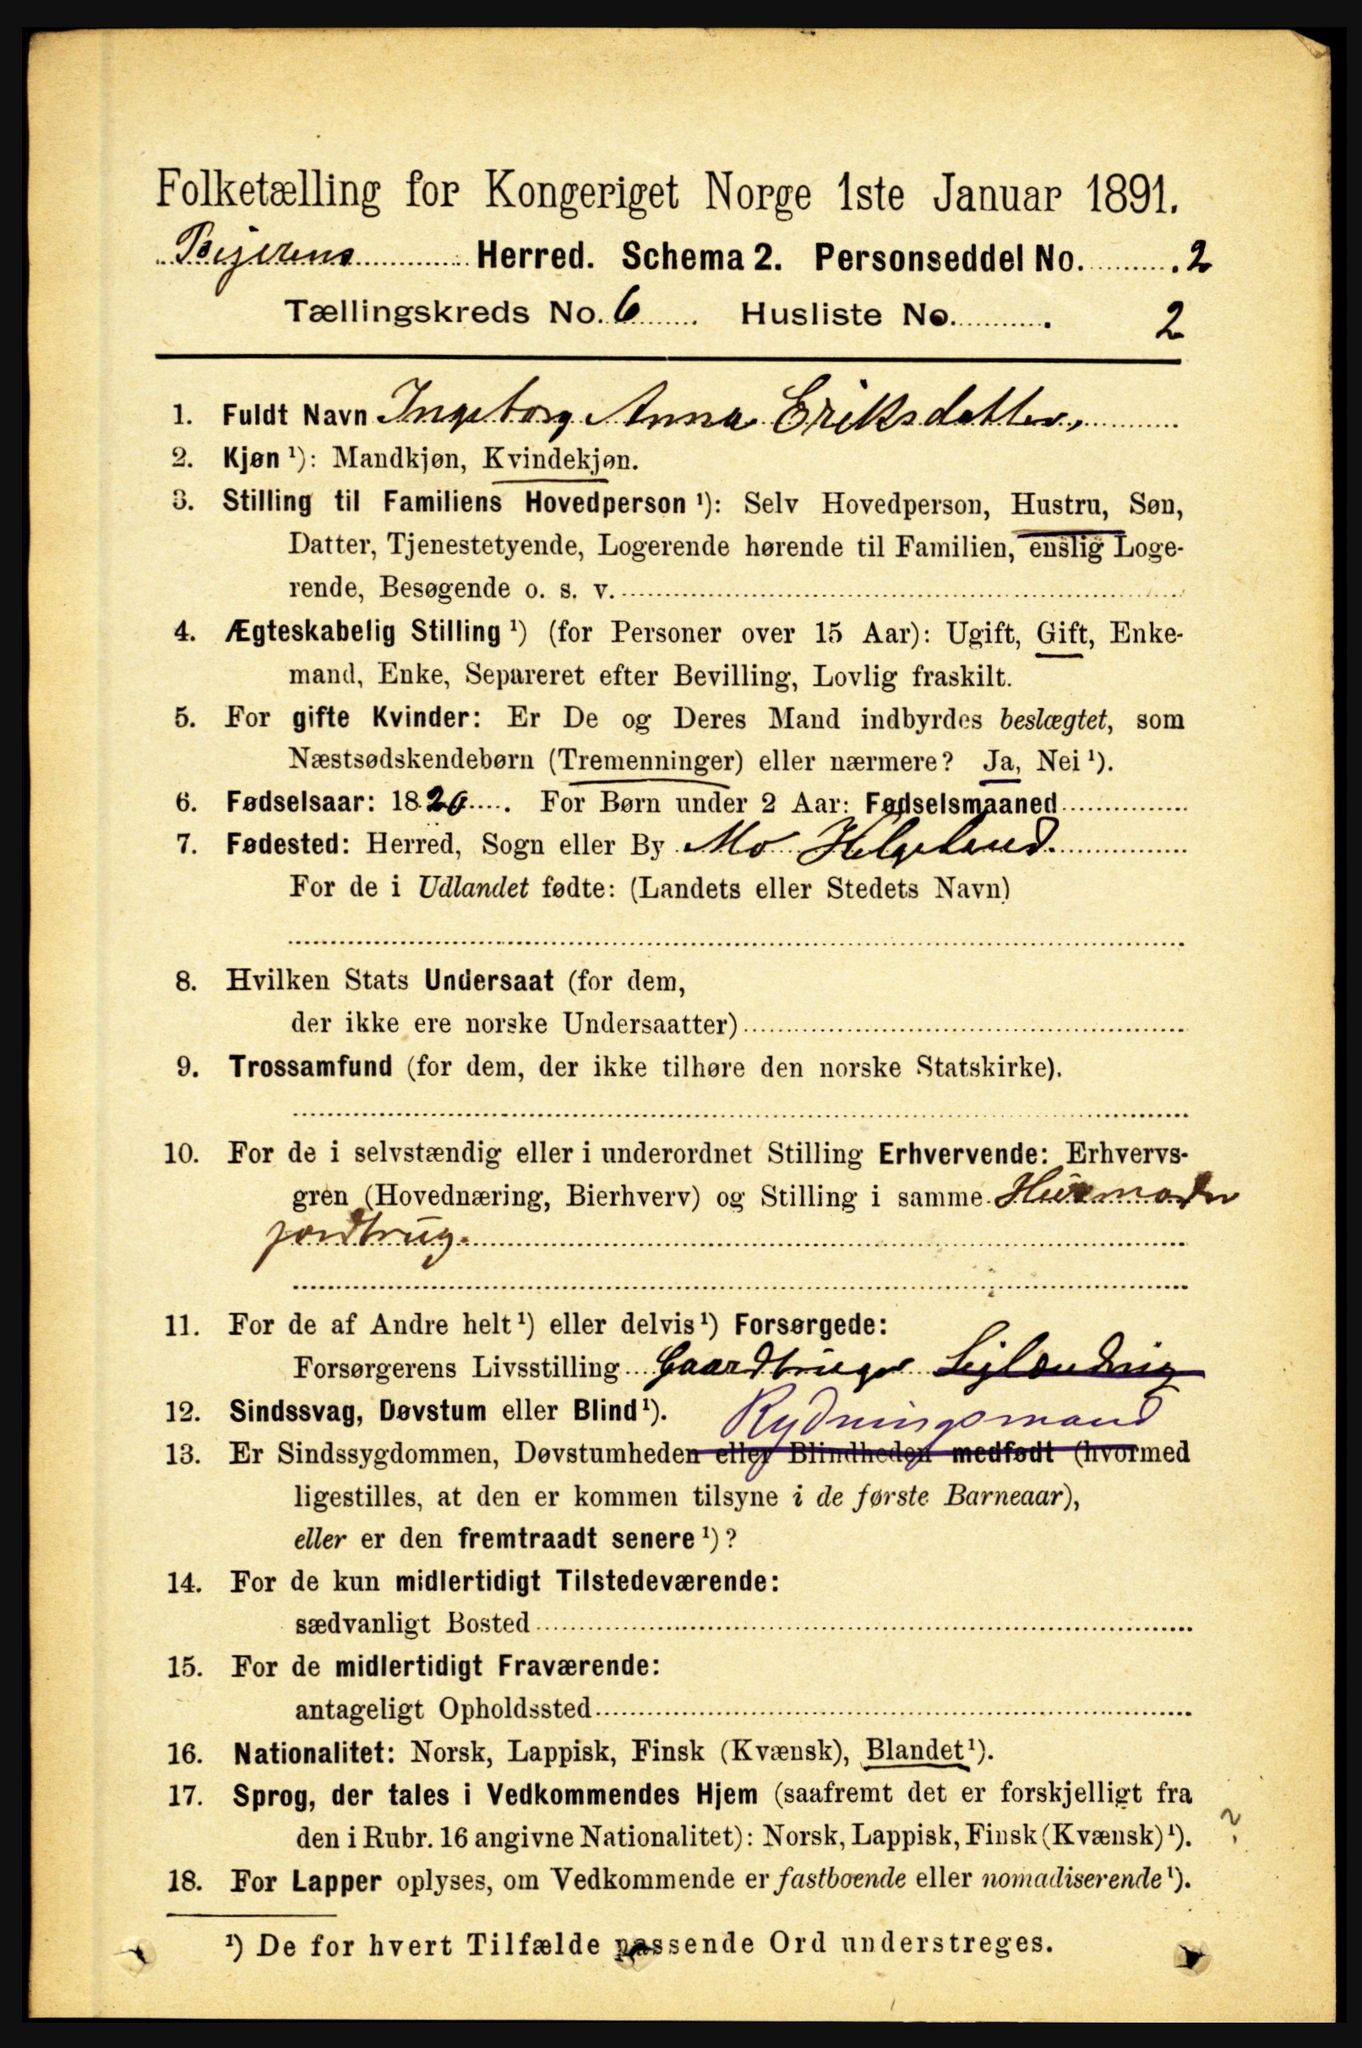 Folketælling for Kongeriget Norge 1ste Januar 1891.
Beierens Herred. Schema 2. Personseddel No. 2
Tællingskreds No. 6 Husliste No. 2
1. Fuldt Navn Ingeborg Anna Eriksdatter,
2. Kjøn ¹): Mandkjøn, Kvindekjøn.
3. Stilling til Familiens Hovedperson ¹): Selv Hovedperson, Hustru, Søn,
Datter, Tjenestetyende, Logerende hørende til Familien, enslig Loge-
rende, Besøgende o. s. v.
4. Ægteskabelig Stilling ¹) (for Personer over 15 Aar): Ugift, Gift, Enke-
mand, Enke, Separeret efter Bevilling, Lovlig fraskilt.
5. For gifte Kvinder: Er De og Deres Mand indbyrdes beslægtet, som
Næstsødskendebørn (Tremenninger) eller nærmere? Ja, Nei ¹).
6. Fødselsaar: 1820. For Børn under 2 Aar: Fødselsmaaned
7. Fødested: Herred, Sogn eller By Mo Helgeland.
For de i Udlandet fødte: (Landets eller Stedets Navn)
8. Hvilken Stats Undersaat (for dem,
der ikke ere norske Undersaatter)
9. Trossamfund (for dem, der ikke tilhøre den norske Statskirke).
10. For de i selvstændig eller i underordnet Stilling Erhvervende: Erhvervs-
gren (Hovednæring, Bierhverv) og Stilling i samme
jordbrug.
11. For de af Andre helt ¹) eller delvis ¹) Forsørgede:
Forsørgerens Livsstilling Gaardbruger
Rydningsmand
12. Sindssvag, Døvstum eller Blind ¹).
13. Er Sindssygdommen, Døvstumheden eller Blindheden medfødt (hvormed
ligestilles, at den er kommen tilsyne i de første Barneaar),
eller er den fremtraadt senere ¹)?
14. For de kun midlertidigt Tilstedeværende:
sædvanligt Bosted
15. For de midlertidigt Fraværende:
antageligt Opholdssted
16. Nationalitet: Norsk, Lappisk, Finsk (Kvænsk), Blandet ¹).
17. Sprog, der tales i Vedkommendes Hjem (saafremt det er forskjelligt fra
den i Rubr. 16 angivne Nationalitet): Norsk, Lappisk, Finsk (Kvænsk) ¹). ?
18. For Lapper oplyses, om Vedkommende er fastboende eller nomadiserende ¹).
¹) De for hvert Tilfælde passende Ord understreges.